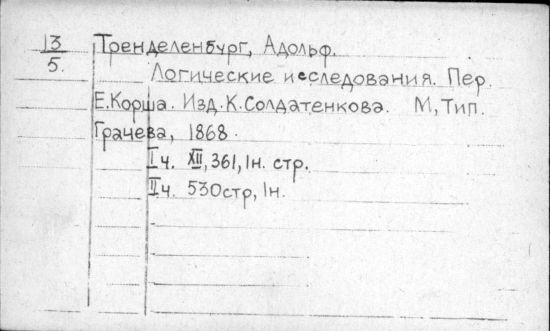 13 Тренделенбург, Адольф.
5. Логические исследования. Пер.
Е.Корша. Изд. К.Солдатенкова. М, Тип.
Грачева, 1868.
I ч. XII, 361, 1н. стр.
II ч. 530 стр, 1н.